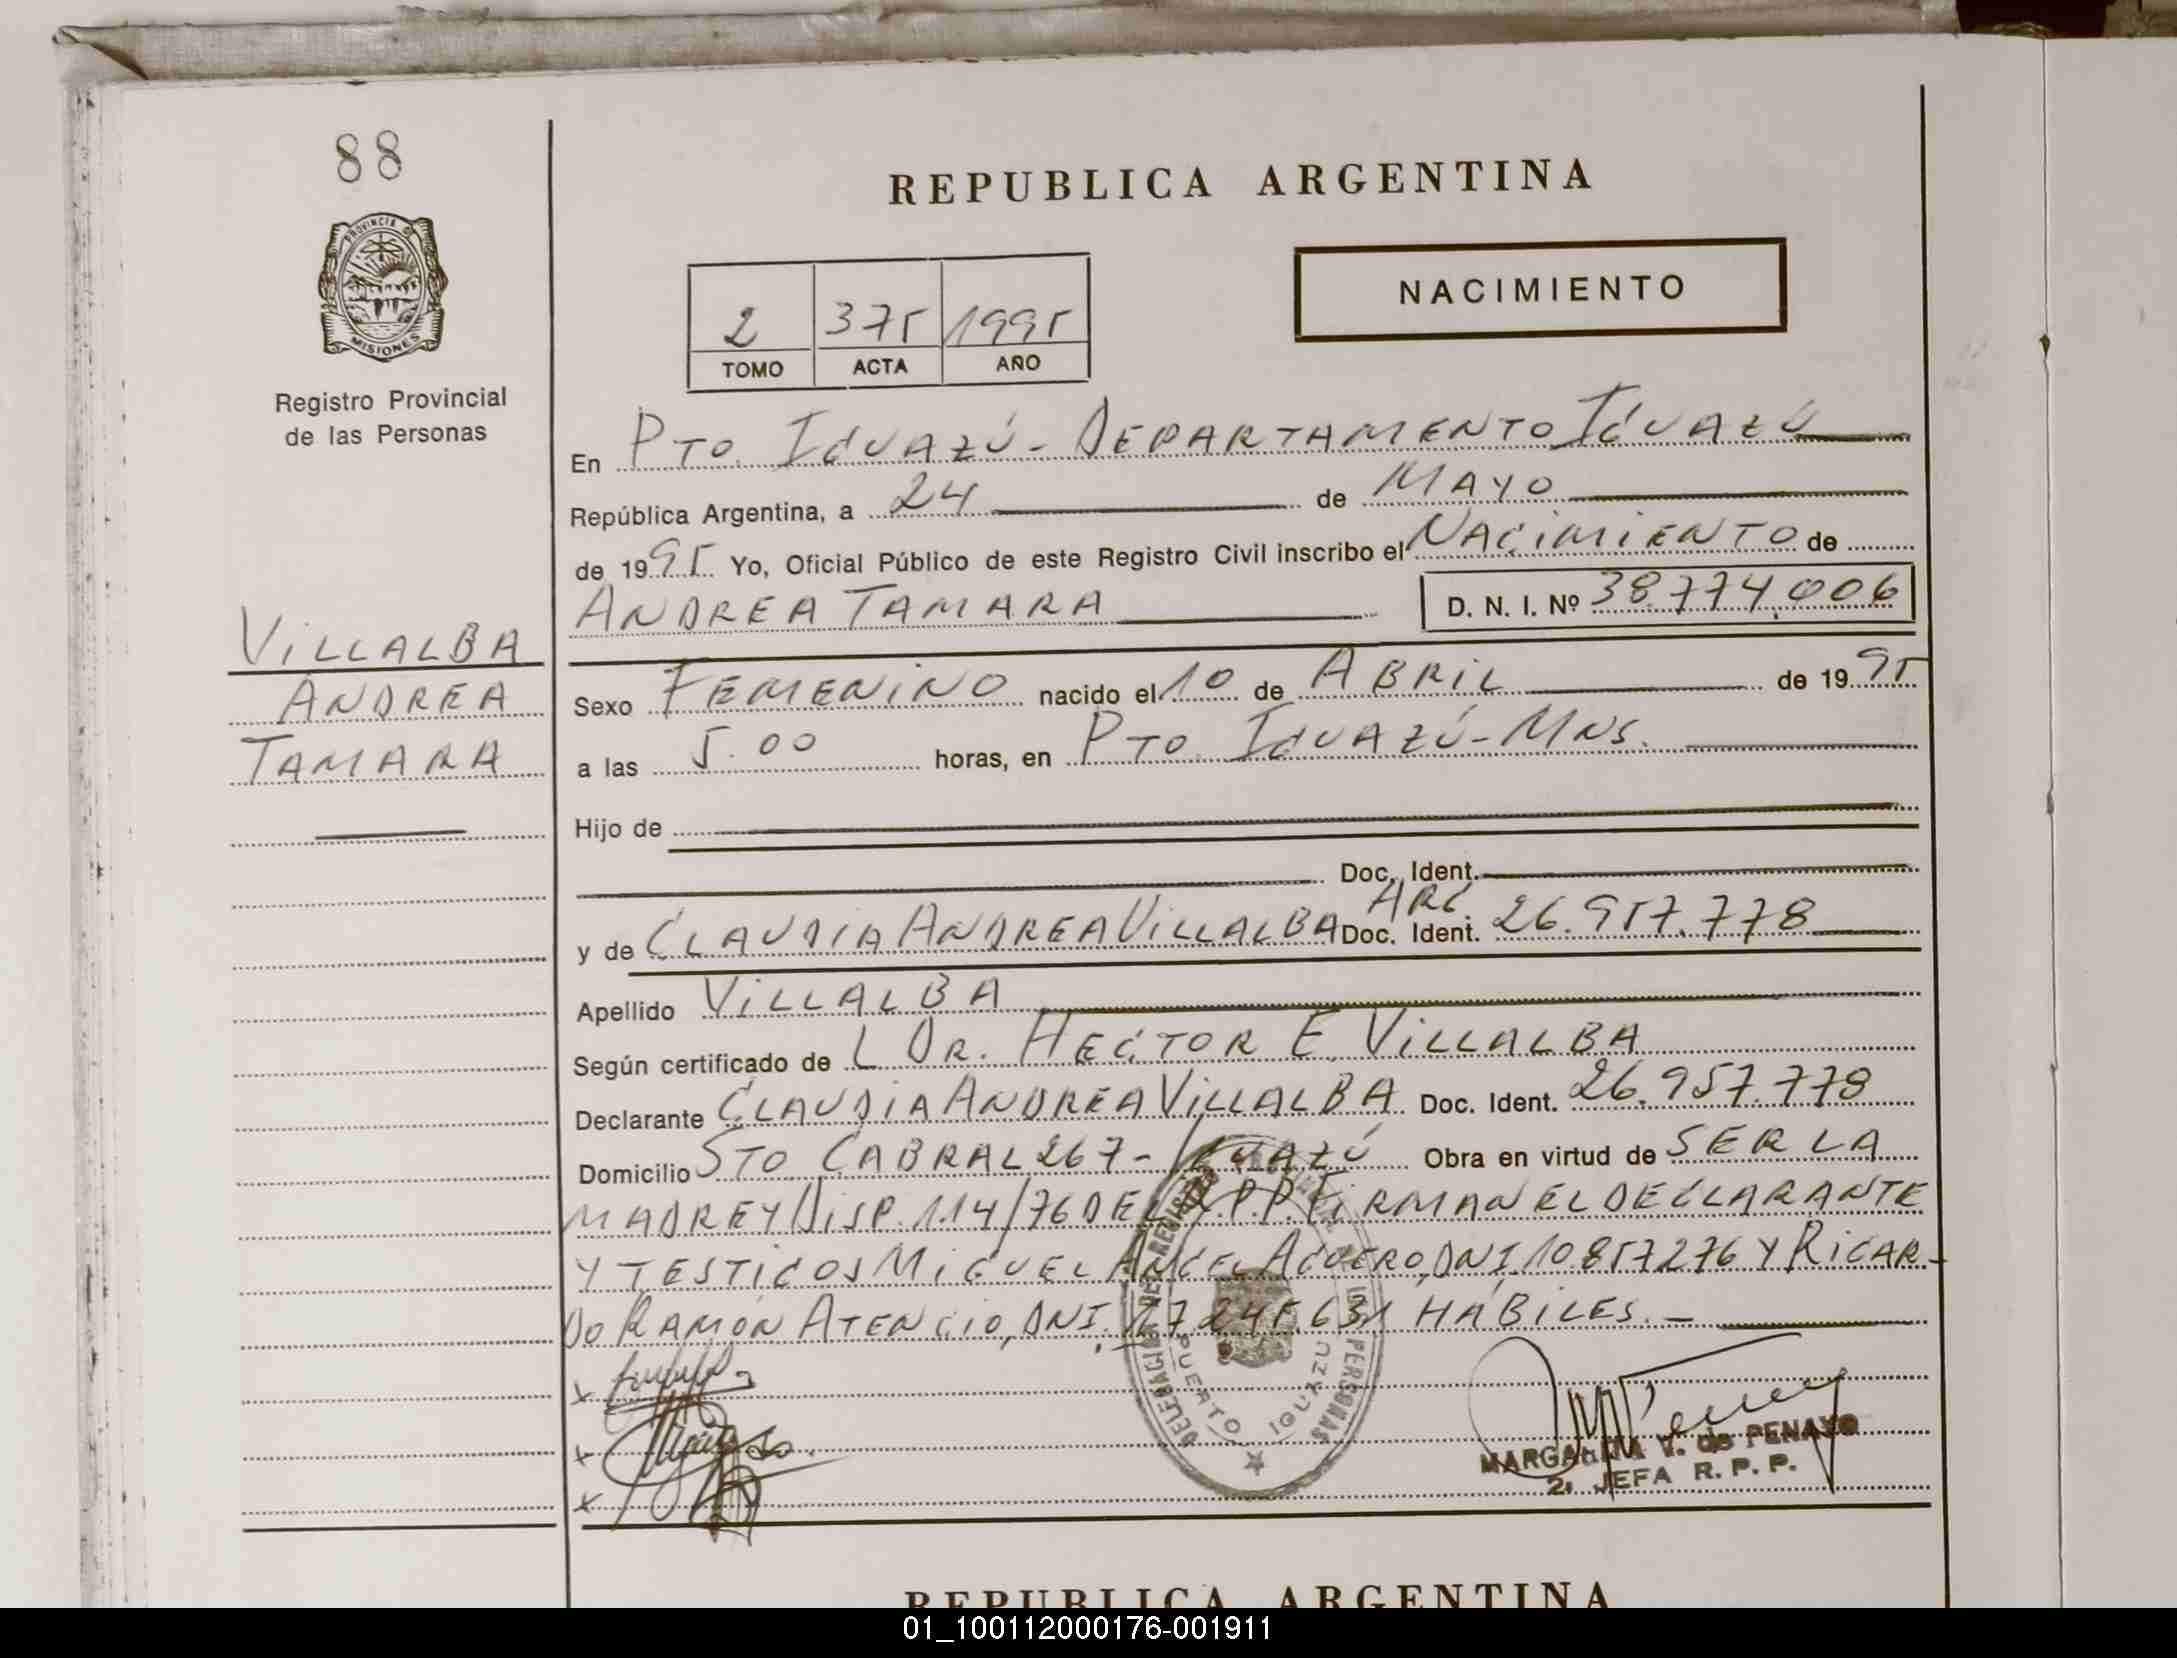 88
REPUBLICA ARGENTINA
PROVINCIA D
MISIONES
Registro Provincial
de las Personas
2 375 1995
TOMO ACTA AÑO
NACIMIENTO
En PTO. IGUAZÚ - DEPARTAMENTO IGUAZÚ
República Argentina, a 24 de MAYO
de 1995 Yo, Oficial Público de este Registro Civil inscribo el NACIMIENTO de
ANDREA TAMARA D. N. I. Nº 38.774.006
VILLALBA
ANDREA
TAMARA
Sexo FEMENINO nacido el 10 de ABRIL de 1995
a las 5.00 horas, en PTO. IGUAZÚ - MNS.
Hijo de
Doc. Ident.
y de CLAUDIA ANDREA VILLALBA Doc. Ident. ARG. 26.957.778
Apellido VILLALBA
Según certificado de L DR. HECTOR E. VILLALBA
Declarante CLAUDIA ANDREA VILLALBA Doc. Ident. 26.957.778
Domicilio STO CABRAL 267 - IGUAZÚ Obra en virtud de SER LA
MADRE Y DISP. 114/76 DEL R.P.P. FIRMAN EL DECLARANTE
Y TESTIGOS MIGUEL ANGEL AGUERO, DNI. 10.857276 Y RICAR-
DO RAMÓN ATENCIO, DNI. 17.245.631 HÁBILES. -
DELEGACION DEL REGISTRO PERSONAS
PUERTO IGUAZU
MARGARITA V. de PENAYO
2. JEFA R. P. P.
REPUBLICA ARGENTINA
01_100112000176-001911